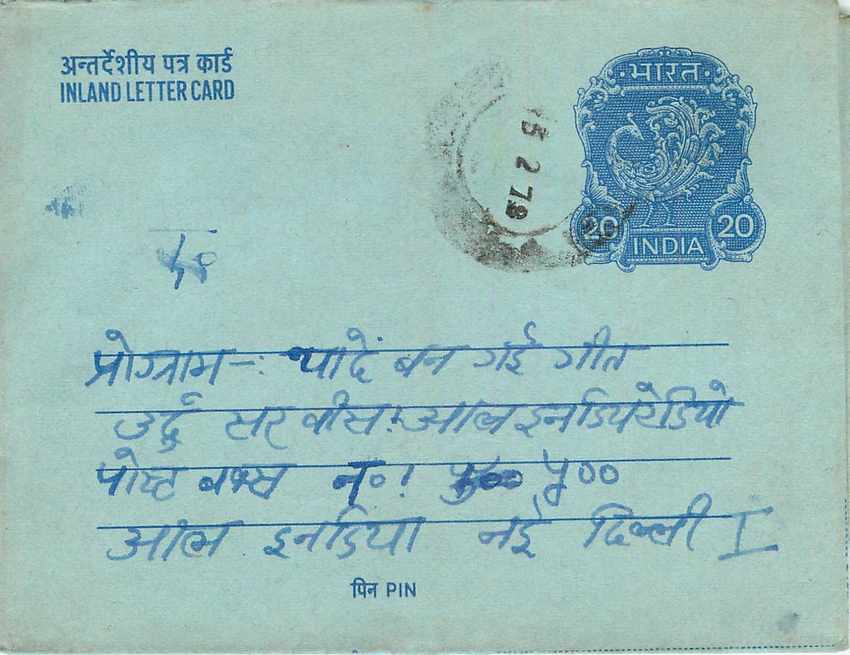 अन्तर्देशीय पत्र कार्ड
INLAND LETTER CARD
भारत
20 20
INDIA
5 2 79
प्रोग्राम -: यादें बन गई गीत
उर्दु सरवीस! आल इनडिया रेडियो
पोस्ट बक्स न०! ५००
आल इनडिया नई दिल्ली I
पिन PIN